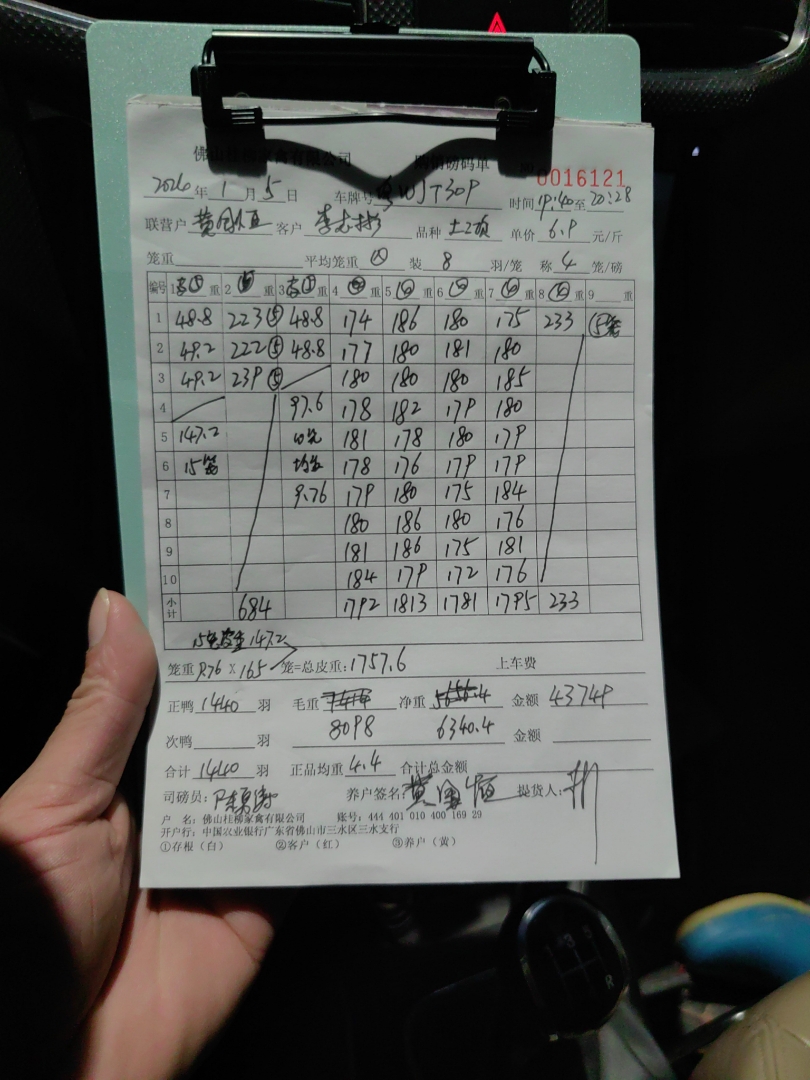 佛山桂柳家禽有限公司 购销磅码单 0016121
2026年1月5日 车牌号 粤WJT30P 时间19:40至20:28
联营户 黄国恒 客户 李志彬 品种 土2顶 单价 6.9 元/斤
笼重 平均笼重 装 8 羽/笼 称 4 笼/磅
编号 1 重 2 重 3 重 4 重 5 重 6 重 7 重 8 重 9 重
1 48.8 223⑤ 48.8 174 186 180 175 233 ⑤笼
2 49.2 222⑤ 48.8 177 180 181 180
3 49.2 239⑤ 180 180 180 185
4 97.6 178 182 179 180
5 147.2 10笼 181 178 180 179
6 15笼 均重 178 176 179 179
7 9.76 179 180 175 184
8 180 186 180 176
9 181 186 175 181
10 184 179 172 176
小计 684 1792 1813 1781 1795 233
15笼皮重147.2
笼重 9.76 × 165 笼=总皮重: 1757.6 上车费
正鸭 1440 羽 毛重 净重 金额 43749
次鸭 羽 8098 6340.4 金额
合计 1440 羽 正品均重 4.4 合计总金额
司磅员: 养户签名: 黄国恒 提货人:
户 名: 佛山桂柳家禽有限公司 账号: 444 401 010 400 169 29
开户行: 中国农业银行广东省佛山市三水区三水支行
①存根（白） ②客户（红） ③养户（黄）